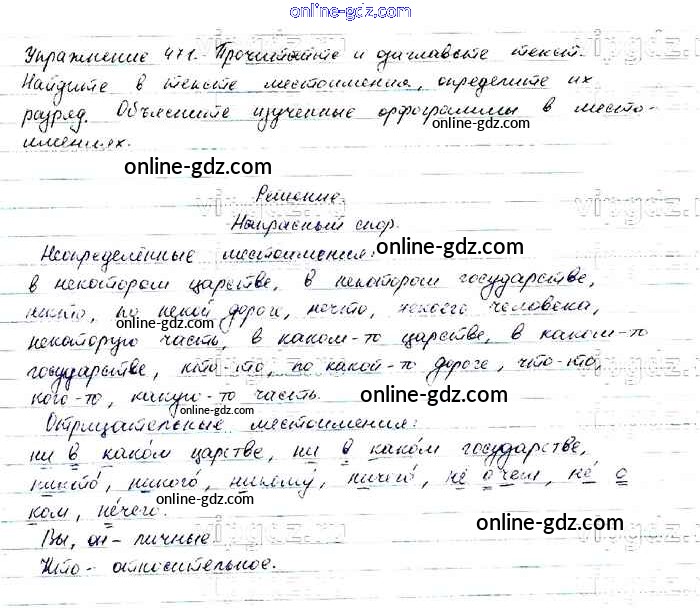 online-gdz.com
Упражнение 471. Прочитайте и озаглавьте текст.
Найдите в тексте местоимения, определите их
разряд. Объясните изученные орфограммы в место-
имениях.
online-gdz.com
online-gdz.com
Решение.
Напрасный спор.
online-gdz.com
online-gdz.com
Неопределённые местоимения:
в некотором царстве, в некотором государстве,
некто, по некой дороге, нечто, некоего человека,
online-gdz.com
некоторую часть, в каком-то царстве, в каком-то
государстве, кто-то, по какой-то дороге, что-то,
кого-то, какую-то часть.
online-gdz.com
online-gdz.com
Отрицательные местоимения:
ни в како́м царстве, ни в како́м государстве,
никто́, никого́, никому́, ничего́, не́ о чем, не́ о
ком, не́чего.
online-gdz.com
online-gdz.com
Вы, он - личные.
Что - относительное.
online-gdz.com